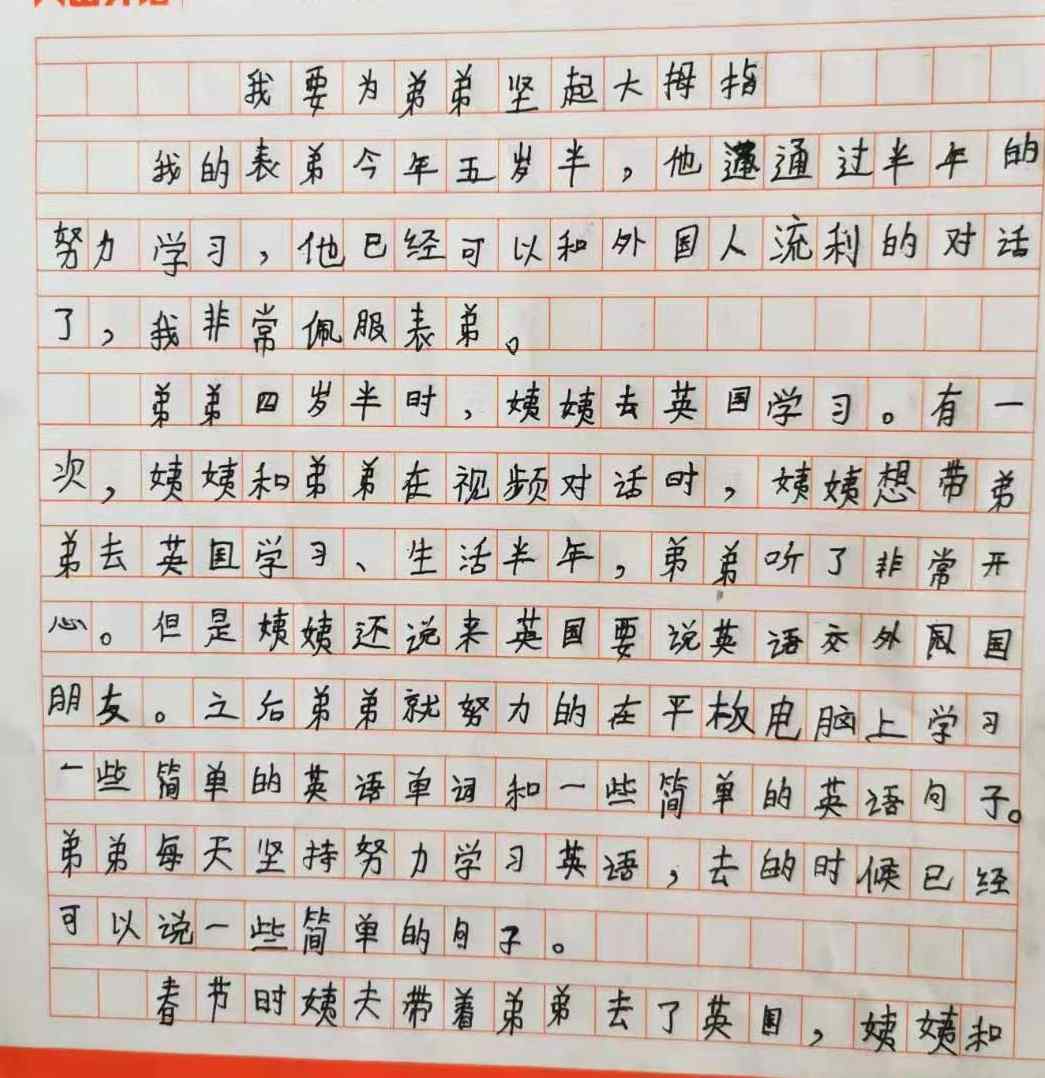 我要为弟弟坚起大拇指
我的表弟今年五岁半，他通过半年的
努力学习，他已经可以和外国人流利的对话
了，我非常佩服表弟。
弟弟四岁半时，姨姨去英国学习。有一
次，姨姨和弟弟在视频对话时，姨姨想带弟
弟去英国学习、生活半年，弟弟听了非常开
心。但是姨姨还说来英国要说英语交外国
朋友。之后弟弟就努力的在平板电脑上学习
一些简单的英语单词和一些简单的英语句子。
弟弟每天坚持努力学习英语，去的时候已经
可以说一些简单的句子。
春节时姨夫带着弟弟去了英国，姨姨和